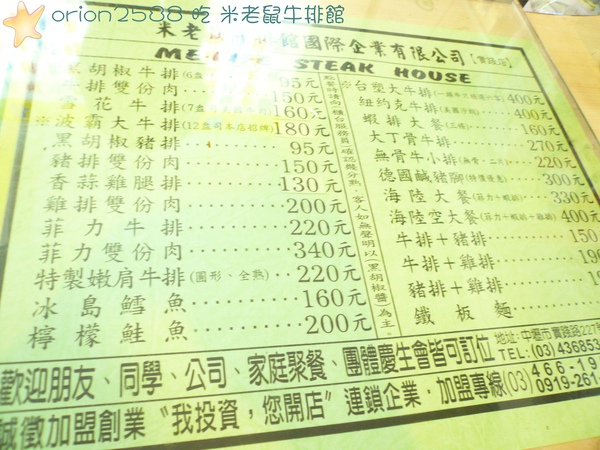 orion2588 吃 米老鼠牛排館
國際企業有限公司【實踐店】
STEAK HOUSE
黑胡椒牛排 95元
牛排雙份肉 150元
雪花牛排 160元
※波霸大牛排(12盎司本店招牌) 180元
黑胡椒豬排 95元
豬排雙份肉 150元
香蒜雞腿排 130元
雞排雙份肉 200元
菲力牛排 220元
菲力雙份肉 340元
特製嫩肩牛排(圓形、全熟) 220元
冰島鱈魚 160元
檸檬鮭魚 200元
點餐時請向機台服務員確認幾分熟，客人如無聲明以(黑胡椒醬)為主。
※台塑大牛排 400元
紐約克牛排 400元
蝦排大餐 160元
大丁骨牛排 270元
無骨牛小排(無骨、二片) 220元
德國鹹豬腳(特價優惠) 300元
海陸大餐(菲力+蝦排) 330元
海陸空大餐(菲力+蝦排+雞排) 400元
牛排+豬排 150
牛排+雞排
豬排+雞排
鐵板麵
歡迎朋友、同學、公司、家庭聚餐、團體慶生會皆可訂位
地址:中壢市實踐路227
TEL:(03)436853
誠徵加盟創業〝我投資,您開店〞連鎖企業·加盟專線(03)466-19
0919-261